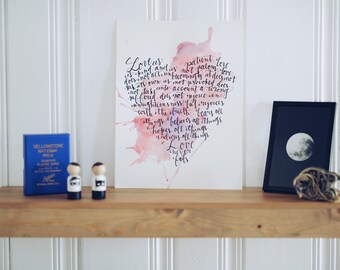 Love is patient love
is kind and is not jealous love
does not unbecomingly it does not
its own is not provoked does
not take into account a wrong
suffered does not rejoice in
unrighteousness but rejoices
with the truth bears all
things believes all things
hopes all things
endures all things
Love
never
fails
YELLOWSTONE
NATIONAL